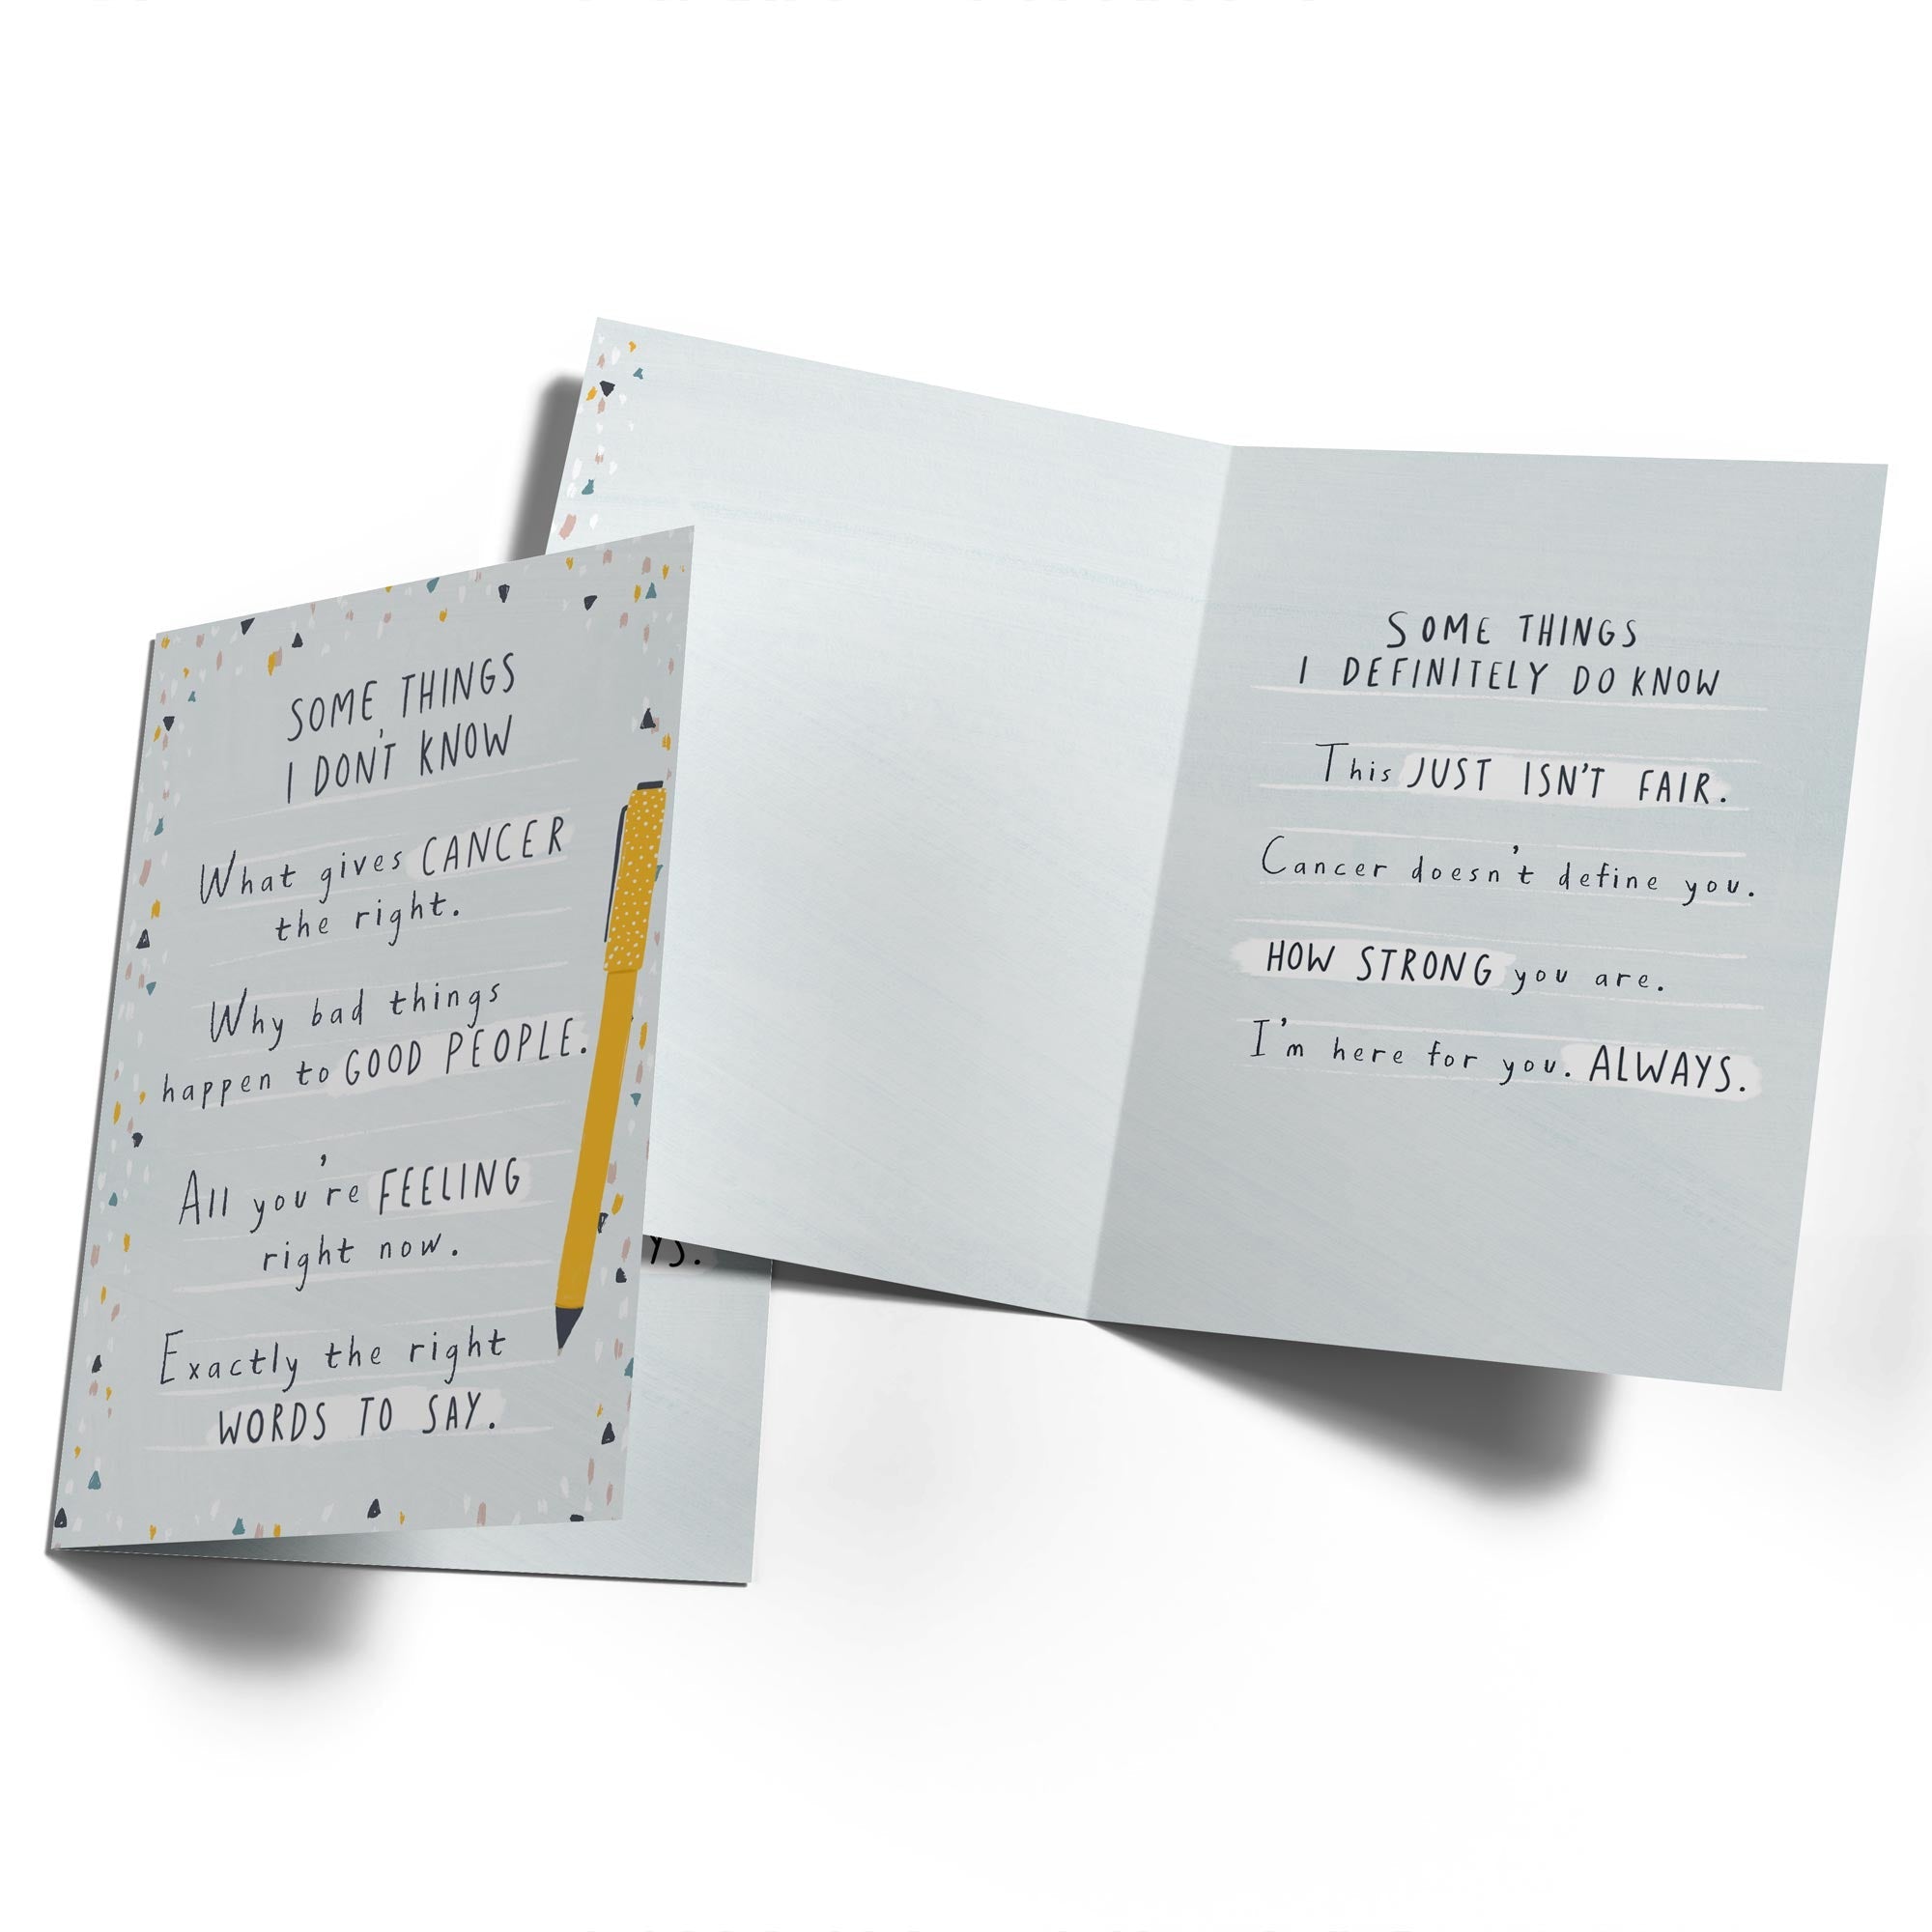 SOME THINGS
I DON'T KNOW
What gives CANCER
the right.
Why bad things
happen to GOOD PEOPLE.
All you're FEELING
right now.
Exactly the right
WORDS TO SAY.
YS.
SOME THINGS
I DEFINITELY DO KNOW
This JUST ISN'T FAIR.
Cancer doesn't define you.
HOW STRONG you are.
I'm here for you. ALWAYS.